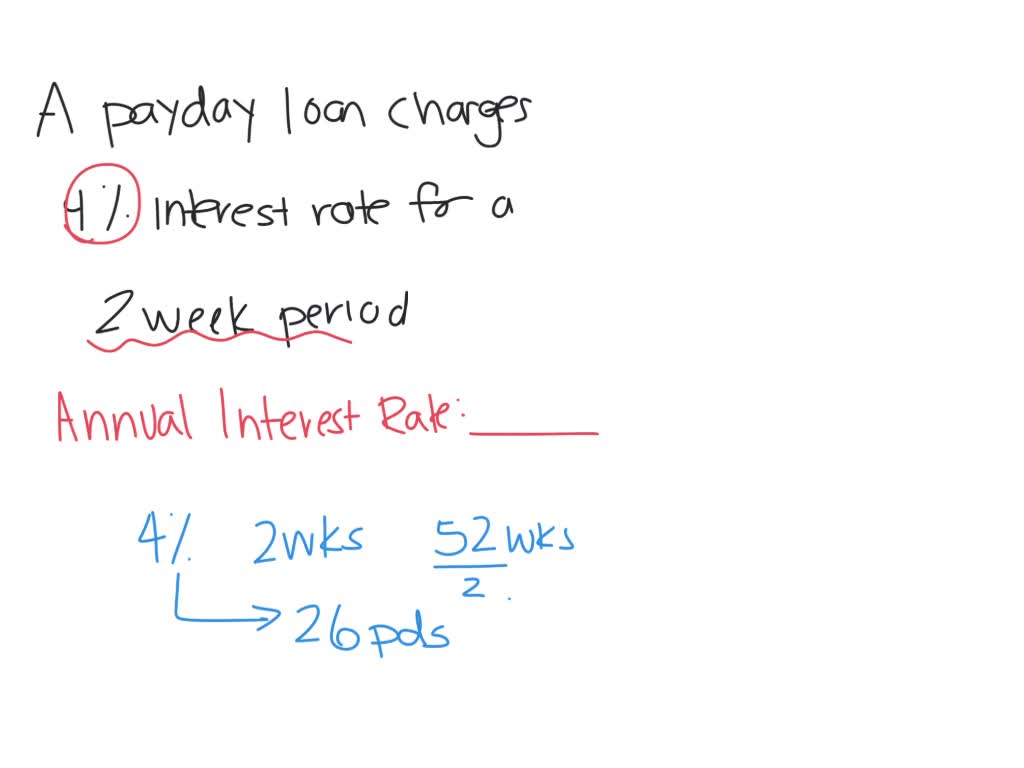 A payday loan charges
4% Interest rate for a
2 week period
Annual Interest Rate: ______
4% 2wks 52 wks
2
26 pds